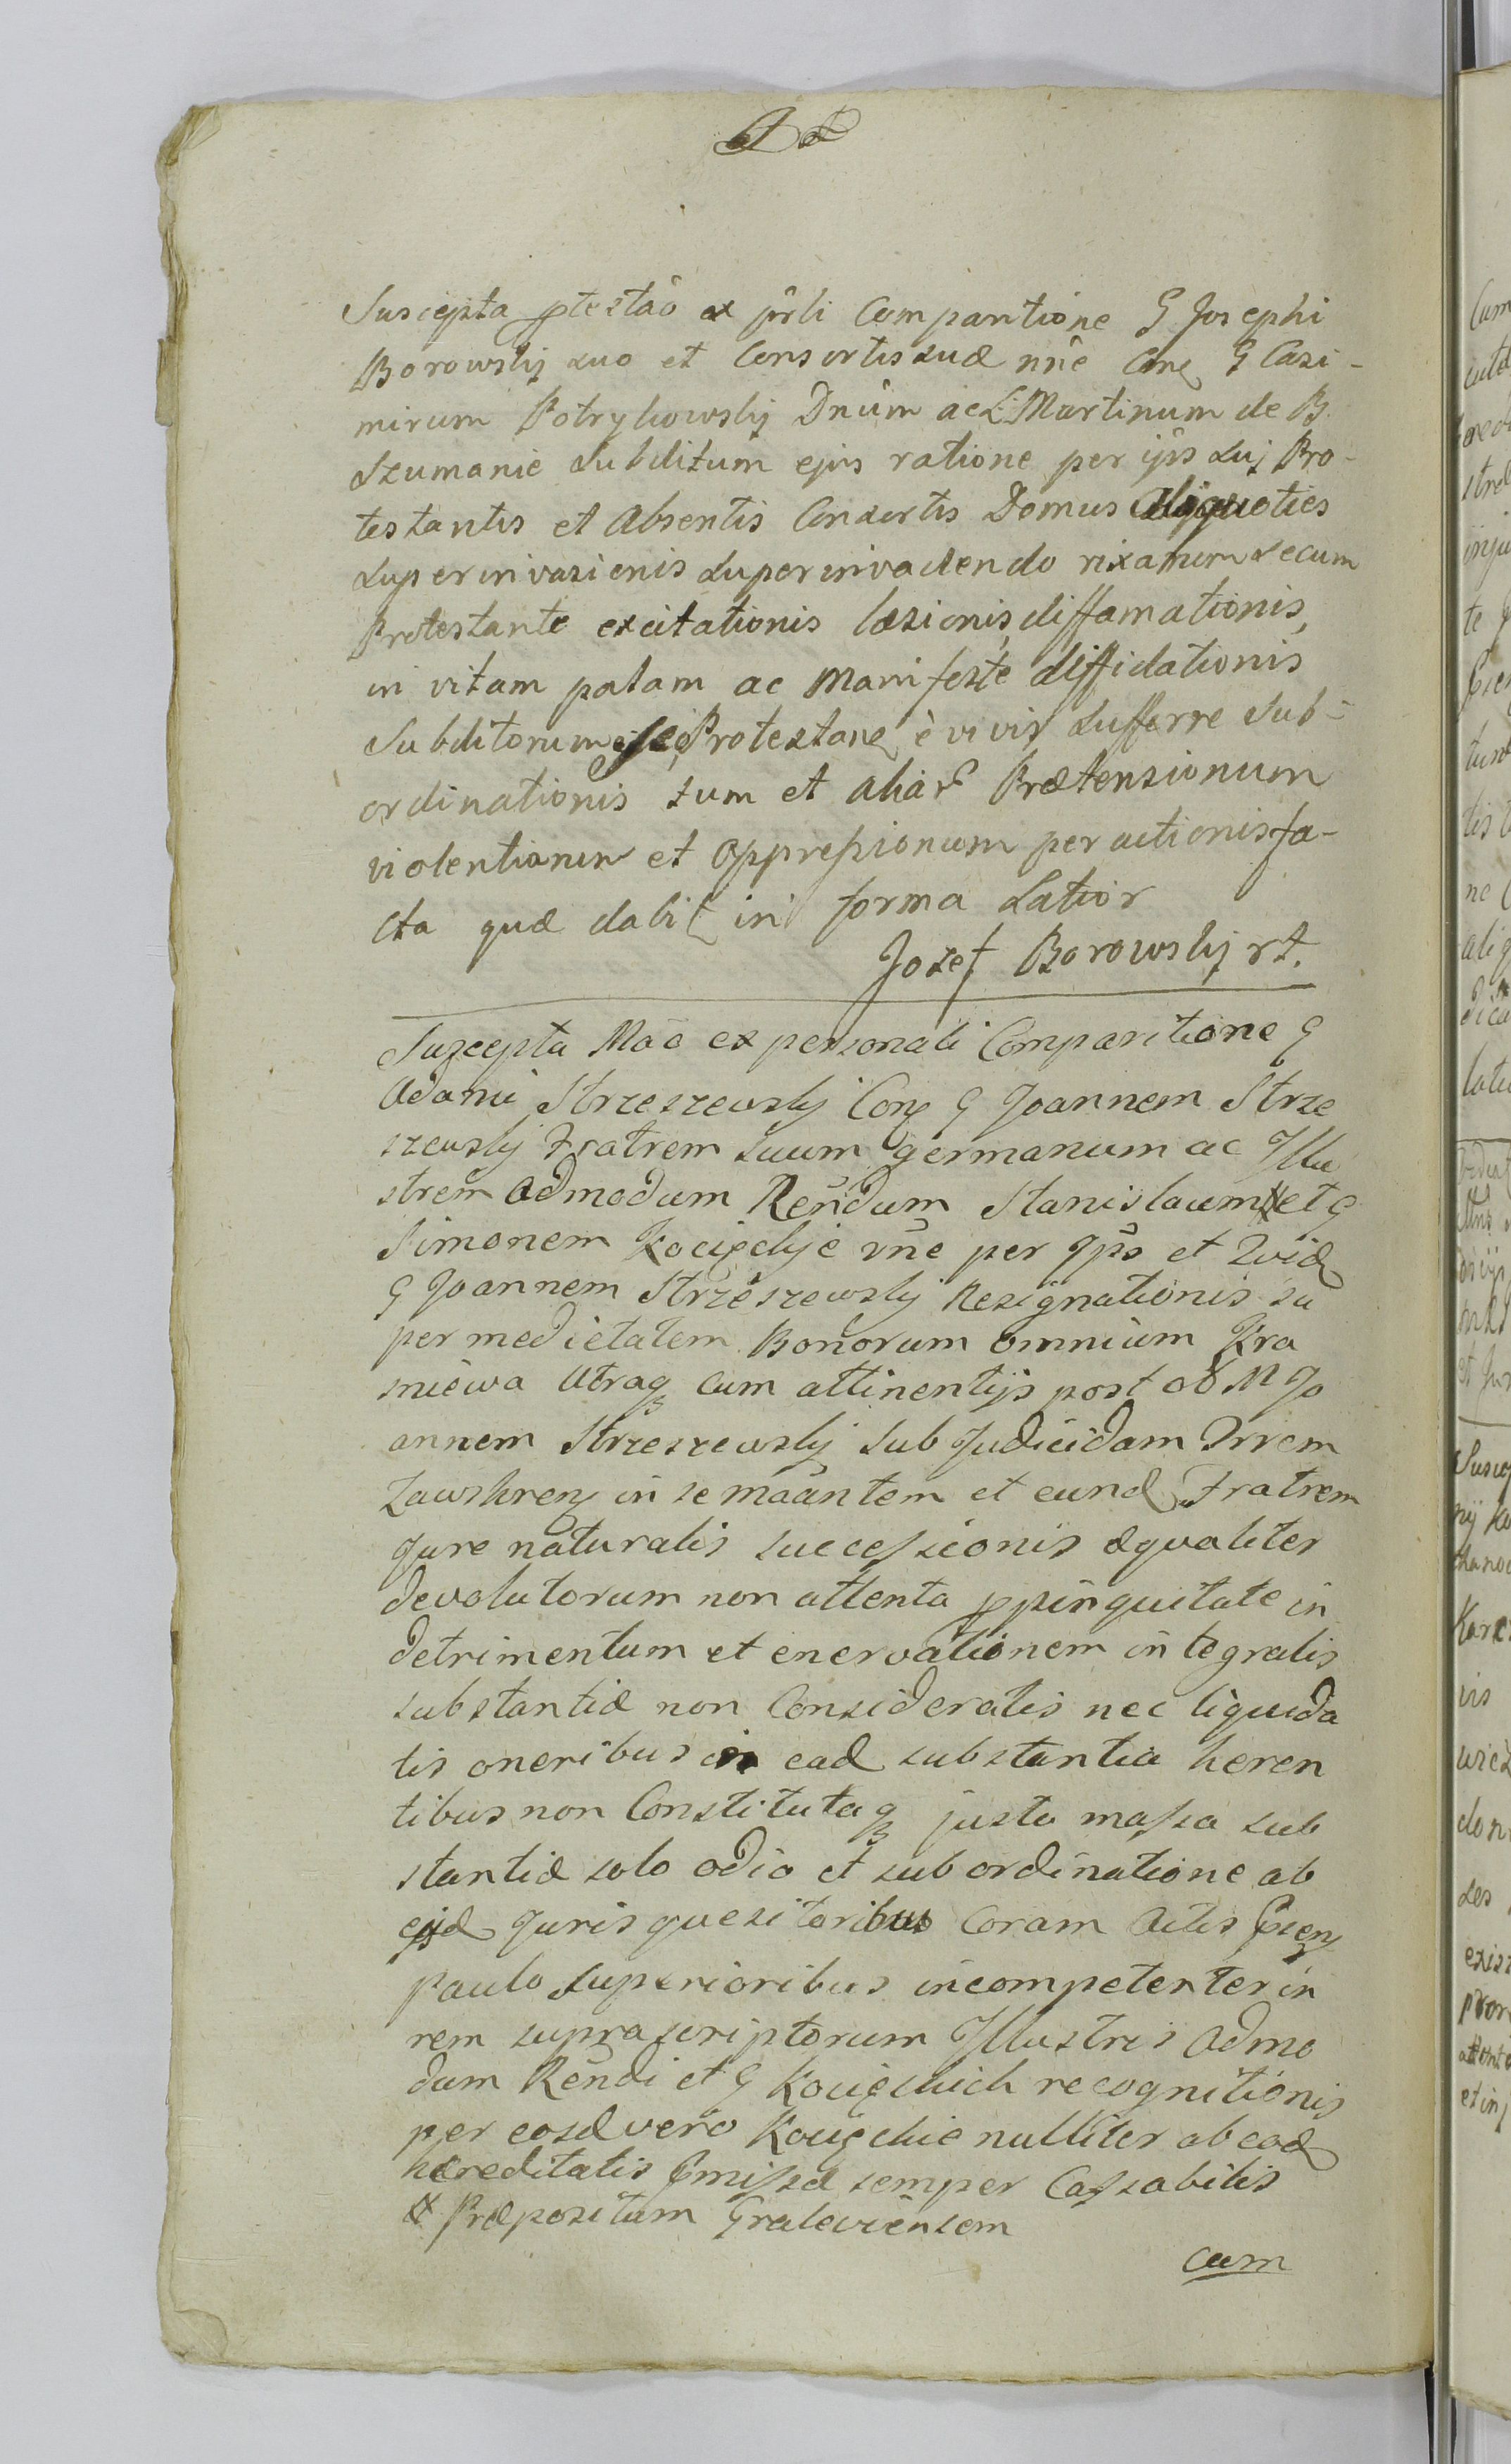 Suscepta ptestaõ ex prli Comparitione G Josephi
Borowskij suo et Consortis suæ nñe Con G Casi-
mirum Potrykowskij Dnum ac L Martinum de B
Szumanie Subditum ejus ratione per ips suj Pro-
testantis et Absentis Consortis Domus Aliquoties
superinvasionis superinvadendo rixarum secum
Protestante excitationis læsionis, diffamationis,
in vitam palam ac manifeste diffidationis
Subditorum Protestane è vivis sufferre Sub-
ordinationis tum et aliar Prætensionum
violentiarum et oppressionum peractionis fa-
cta quæ dabit in forma Latior
Jozef Borowskij rt.
Suscepta Mãõ ex personali Comparitione G
Adami Strzeszewskij Con G Joannem Strze
szewskij Fratrem suum germanum ac Illu
strem Admodum Rendum Stanislaum # et G
Simonem Kocięckie rñe per Ips et Quid
G Joannem Strzeszewskij Resignationis su
per medietatem Bonorum omnium Kra
sniewa Utraq cum attinentijs post ob M Jo
annem Strzeszewskij sub Judicidam Trrem
Zawskren in se maantem et eund Fratrem
Jure naturalis successionis æqualiter
devolutorum non attenta ppinquitate in
detrimentum et enervationem integralis
substantiæ non Consideratis nec liquida
tis oneribus in ead substantia heren
tibus non Constitutaq justa massa sub
stantiæ solo odio et subordinatione ab
ejsd Juris quesitoribus Coram Actis Cien
paulo superioribus incompetenter in
rem suprascriptorum Illustris Admo
dum Rendi et G Kocięckich recognitionis
per eosd vero Kocięckie nulliter ab ead
hæreditatis Emissæ semper Cassabilis
# Præpositum Graleviensem
cum